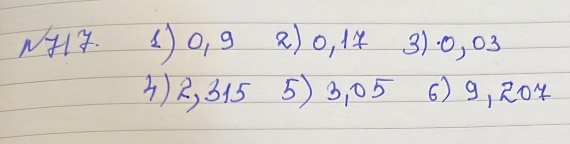 №717. 1) 0,9 2) 0,17 3) 0,03
4) 2,315 5) 3,05 6) 9,207